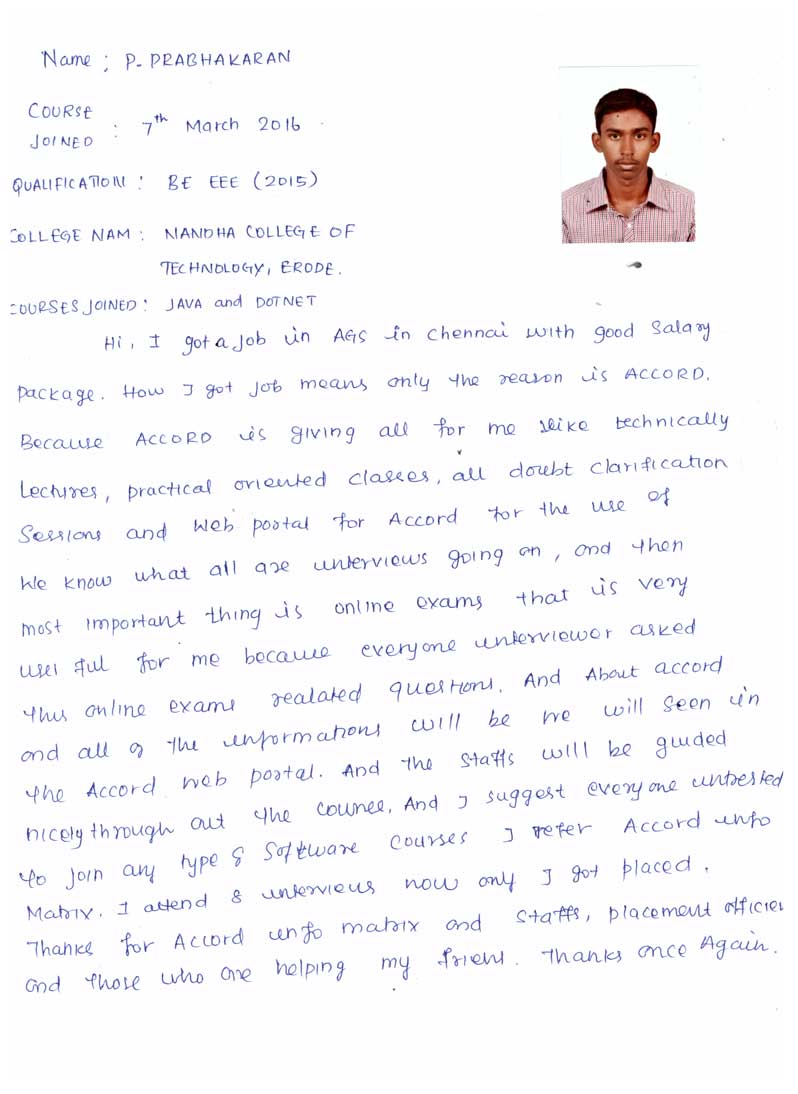 Name : P. PRABHAKARAN
COURSE
JOINED : 7th March 2016
QUALIFICATION : BE EEE (2015)
COLLEGE NAM : NANDHA COLLEGE OF
TECHNOLOGY, ERODE.
COURSES JOINED : JAVA and DOTNET
Hi, I got a job in AGS in Chennai with good Salary
package. How I got Job means only the reason is ACCORD.
Because ACCORD is giving all for me like technically
Lectures, practical oriented classes, all doubt clarification
Sessions and Web portal for Accord for the use of
We know what all are interviews going on, and then
most important thing is online exams that is very
useful for me because everyone interviewer asked
this online exams realated questions. And About accord
and all of the informations will be we will seen in
the Accord web portal. And the staffs will be guided
nicely through out the counee. And I suggest everyone intrested
to join any type of Software courses I refer Accord info
Matrix. I attend 8 interviews now only I got placed.
Thanks for Accord info matrix and staffs, placement officier
and those who are helping my friens. Thanks once Again.